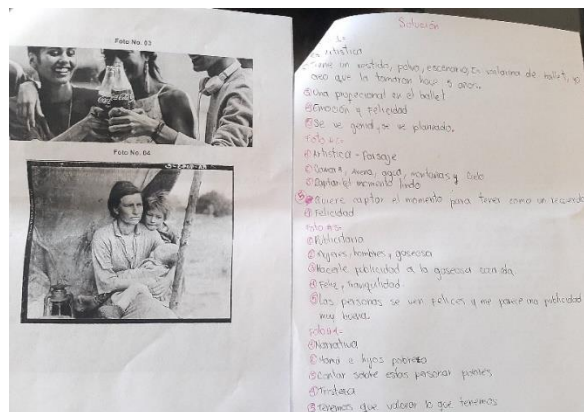 Foto No. 03
Coca-Cola
Foto No. 04
Solución
Artística
Tiene un vestido, polvo, escenario, Es bailarina de ballet, yo
creo que la tomaron hace 5 años.
③ Una profecional en el ballet
④ Emoción y Felicidad
⑤ Se ve genial, se ve planeado.
Foto #2-
① Artística - Paisaje
② arena, agua, montañas y Cielo
③ Captar el momento lindo
⑤ Quiere captar el momento para tener como un recuerdo
④ Felicidad
Foto #3-
① Publicitaria
② Mujeres, hombres, y gaseosa
③ Hacerle publicidad a la gaseosa
④ Feliz, tranquilidad.
⑤ Las personas se ven felices y me parece una publicidad
muy buena.
Foto #4-
① Narrativa
② Mamá e hijos pobreza
③ Contar sobre estas personas pobres
④ Tristeza
⑤ Tenemos que valorar lo que tenemos